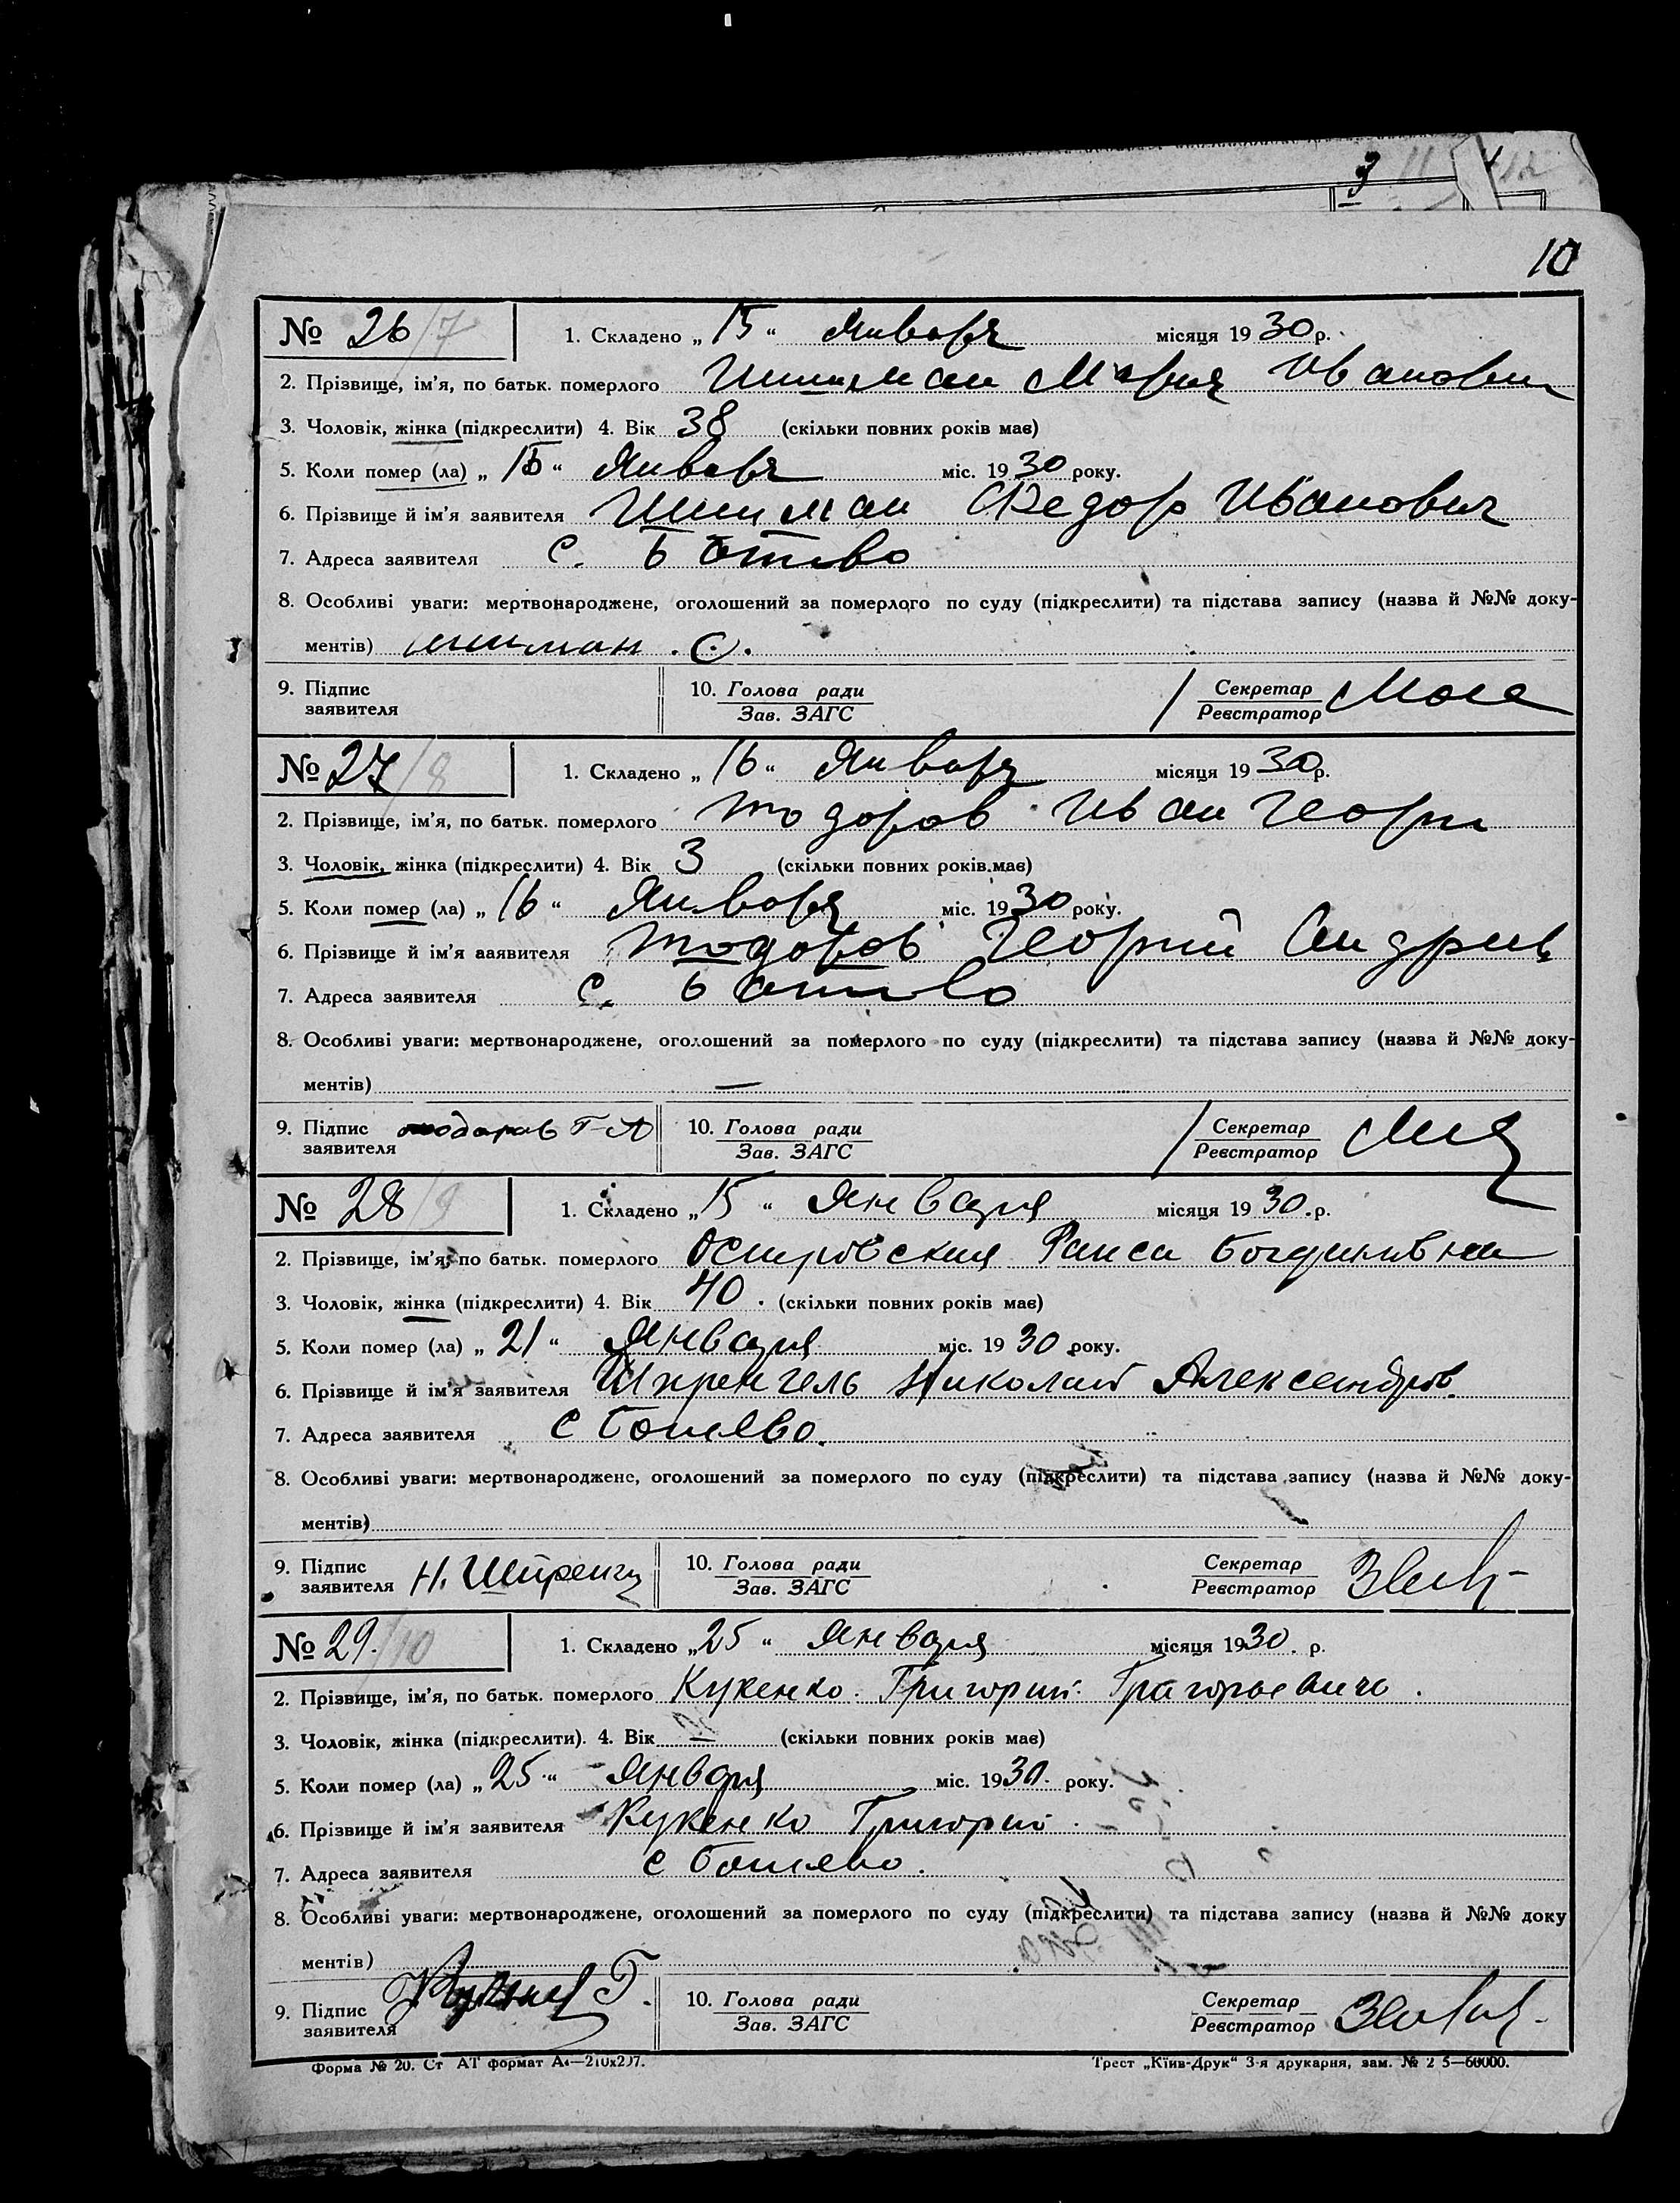 10
№ 26/7 1. Складено „15“ Января місяця 1930 р.
2. Прізвище, ім'я, по батьк. померлого Шишман Мария Иванович
3. Чоловік, жінка (підкреслити) 4. Вік 38 (скільки повних років має)
5. Коли помер (ла) „15“ Января міс. 1930 року.
6. Прізвище й ім'я заявителя Шишман Федор Иванович
7. Адреса заявителя с. Ботиево
8. Особливі уваги: мертвонароджене, оголошений за померлого по суду (підкреслити) та підстава запису (назва й №№ доку-
ментів) шишман .
9. Підпис заявителя 10. Голова ради Зав. ЗАГС Секретар Реєстратор
№ 27/8 1. Складено „16“ Января місяця 1930 р.
2. Прізвище, ім'я, по батьк. померлого Тодоров Иван Георги
3. Чоловік, жінка (підкреслити) 4. Вік 3 (скільки повних років має)
5. Коли помер (ла) „16“ Января міс. 1930 року.
6. Прізвище й ім'я заявителя Тодоров Георгий Андрив
7. Адреса заявителя с. Ботиево
8. Особливі уваги: мертвонароджене, оголошений за померлого по суду (підкреслити) та підстава запису (назва й №№ доку-
ментів) —
9. Підпис заявителя тодоров Г А 10. Голова ради Зав. ЗАГС Секретар Реєстратор
№ 28/9 1. Складено „15“ Января місяця 1930 . р.
2. Прізвище, ім'я, по батьк. померлого Островская Раиса
3. Чоловік, жінка (підкреслити) 4. Вік 40 . (скільки повних років має)
5. Коли помер (ла) „21“ Января міс. 1930 року.
6. Прізвище й ім'я заявителя Шпренгель Николай Александров.
7. Адреса заявителя с Ботиево.
8. Особливі уваги: мертвонароджене, оголошений за померлого по суду (підкреслити) та підстава запису (назва й №№ доку-
ментів)
9. Підпис заявителя Н. 10. Голова ради Зав. ЗАГС Секретар Реєстратор
№ 29./10 1. Складено „25“ Января місяця 1930 . р.
2. Прізвище, ім'я, по батьк. померлого Кукенко. Григорий. Григорьевич .
3. Чоловік, жінка (підкреслити). 4. Вік (скільки повних років має)
5. Коли помер (ла) „25“ Января міс. 1930. року.
6. Прізвище й ім'я заявителя Кукенко Григорий
7. Адреса заявителя с Ботиево.
8. Особливі уваги: мертвонароджене, оголошений за померлого по суду (підкреслити) та підстава запису (назва й №№ доку
ментів)
9. Підпис заявителя 10. Голова ради Зав. ЗАГС Секретар Реєстратор
Форма № 20. Ст АТ формат А4—210х297. Трест „Київ-Друк“ 3-я друкарня, зам. № 2 5—60000.